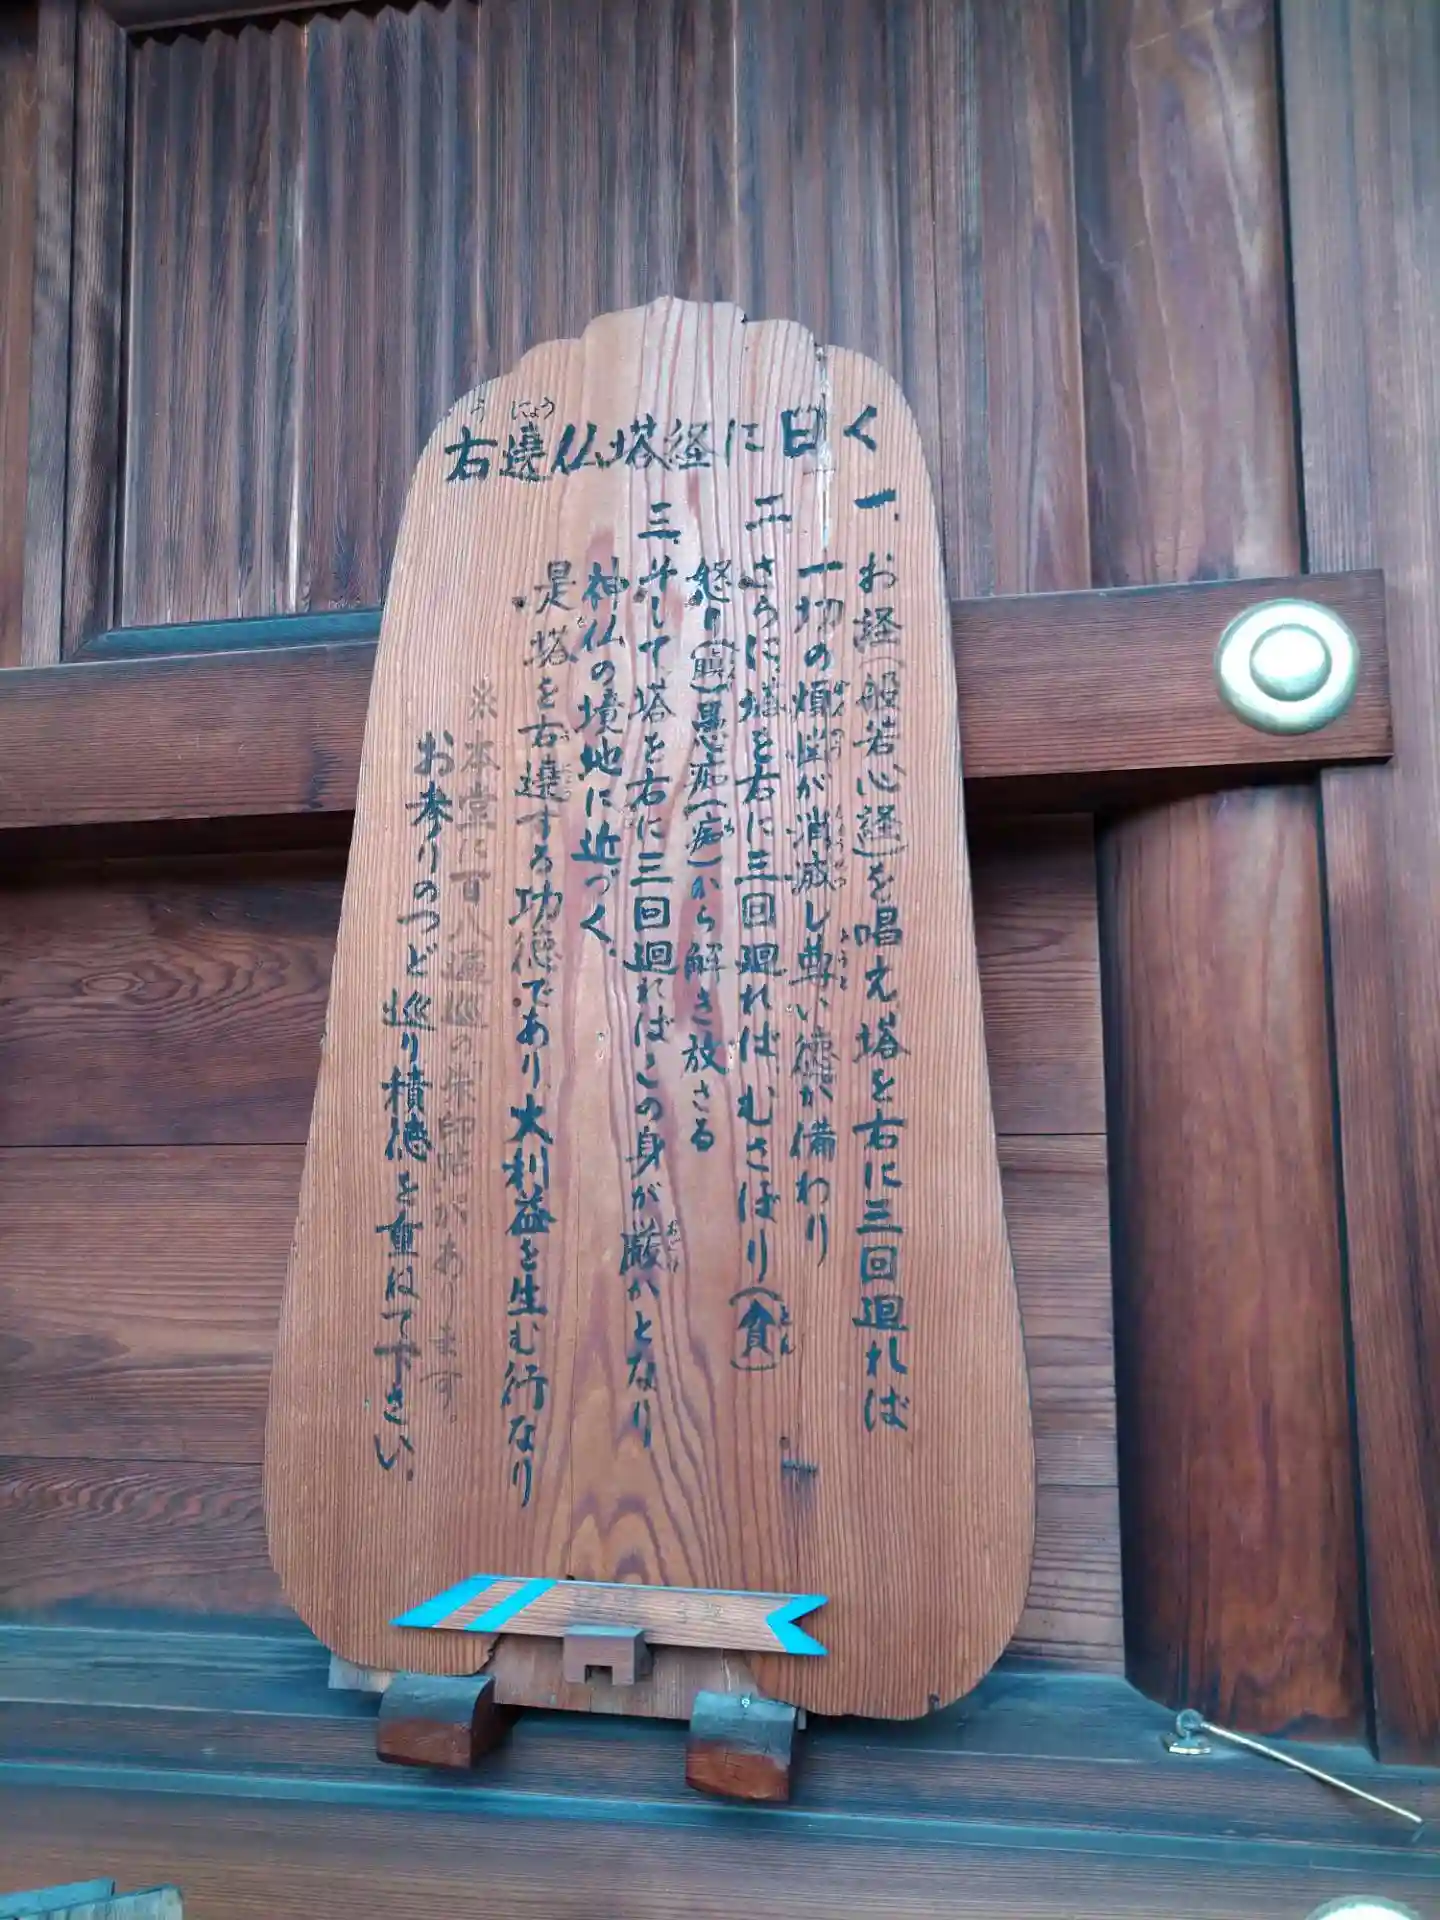 右遶仏塔経に曰く
一、お経(般若心経)を唱え、塔を右に三回廻れば
一切の煩悩が消滅し尊い徳が備わり
二、さらに塔を右に三回廻れば、むさぼり(貪)
怒り(瞋)愚痴(痴)から解き放さる
三、そして塔を右に三回廻ればこの身が厳かとなり
神仏の境地に近づく。
是塔を右遶する功徳であり、大利益を生む行なり
※本堂に百八遍巡の朱印帖があります。
お参りのつど巡り積徳を重ねて下さい。